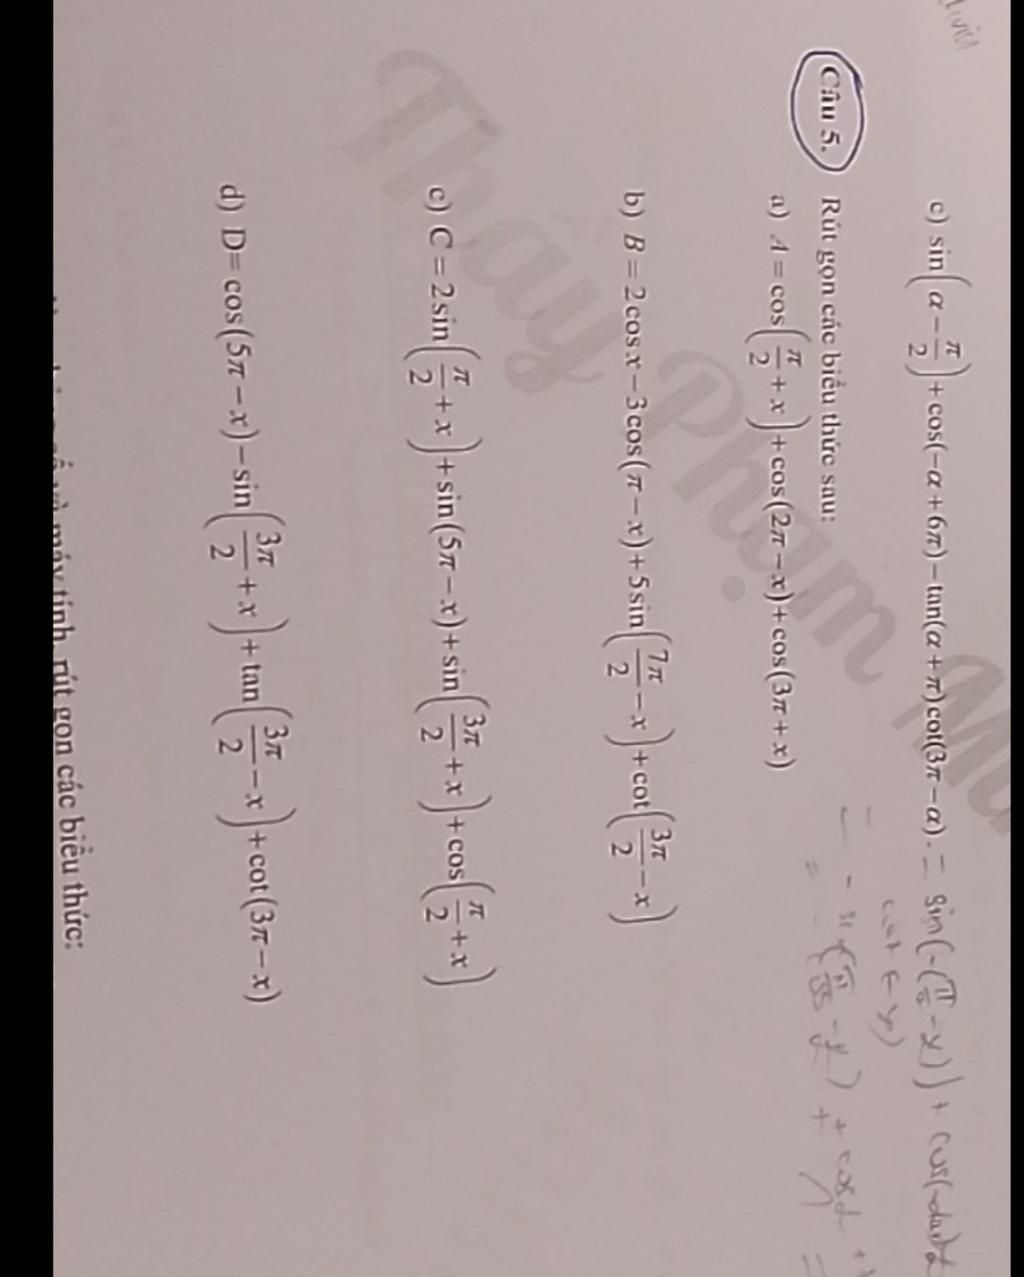 c) sin(α − π/2) + cos(−α + 6π) − tan(α + π)cot(3π − α). = sin(-(π/2 - x)) + cos(
cot (-x)
Câu 5. Rút gọn các biểu thức sau:
a) A = cos(π/2 + x) + cos(2π − x) + cos(3π + x)
b) B = 2cos x − 3cos(π − x) + 5sin(7π/2 − x) + cot(3π/2 − x)
c) C = 2sin(π/2 + x) + sin(5π − x) + sin(3π/2 + x) + cos(π/2 + x)
d) D= cos(5π − x) − sin(3π/2 + x) + tan(3π/2 − x) + cot(3π − x)
số và máy tính, rút gọn các biểu thức:
Thầy Phạm